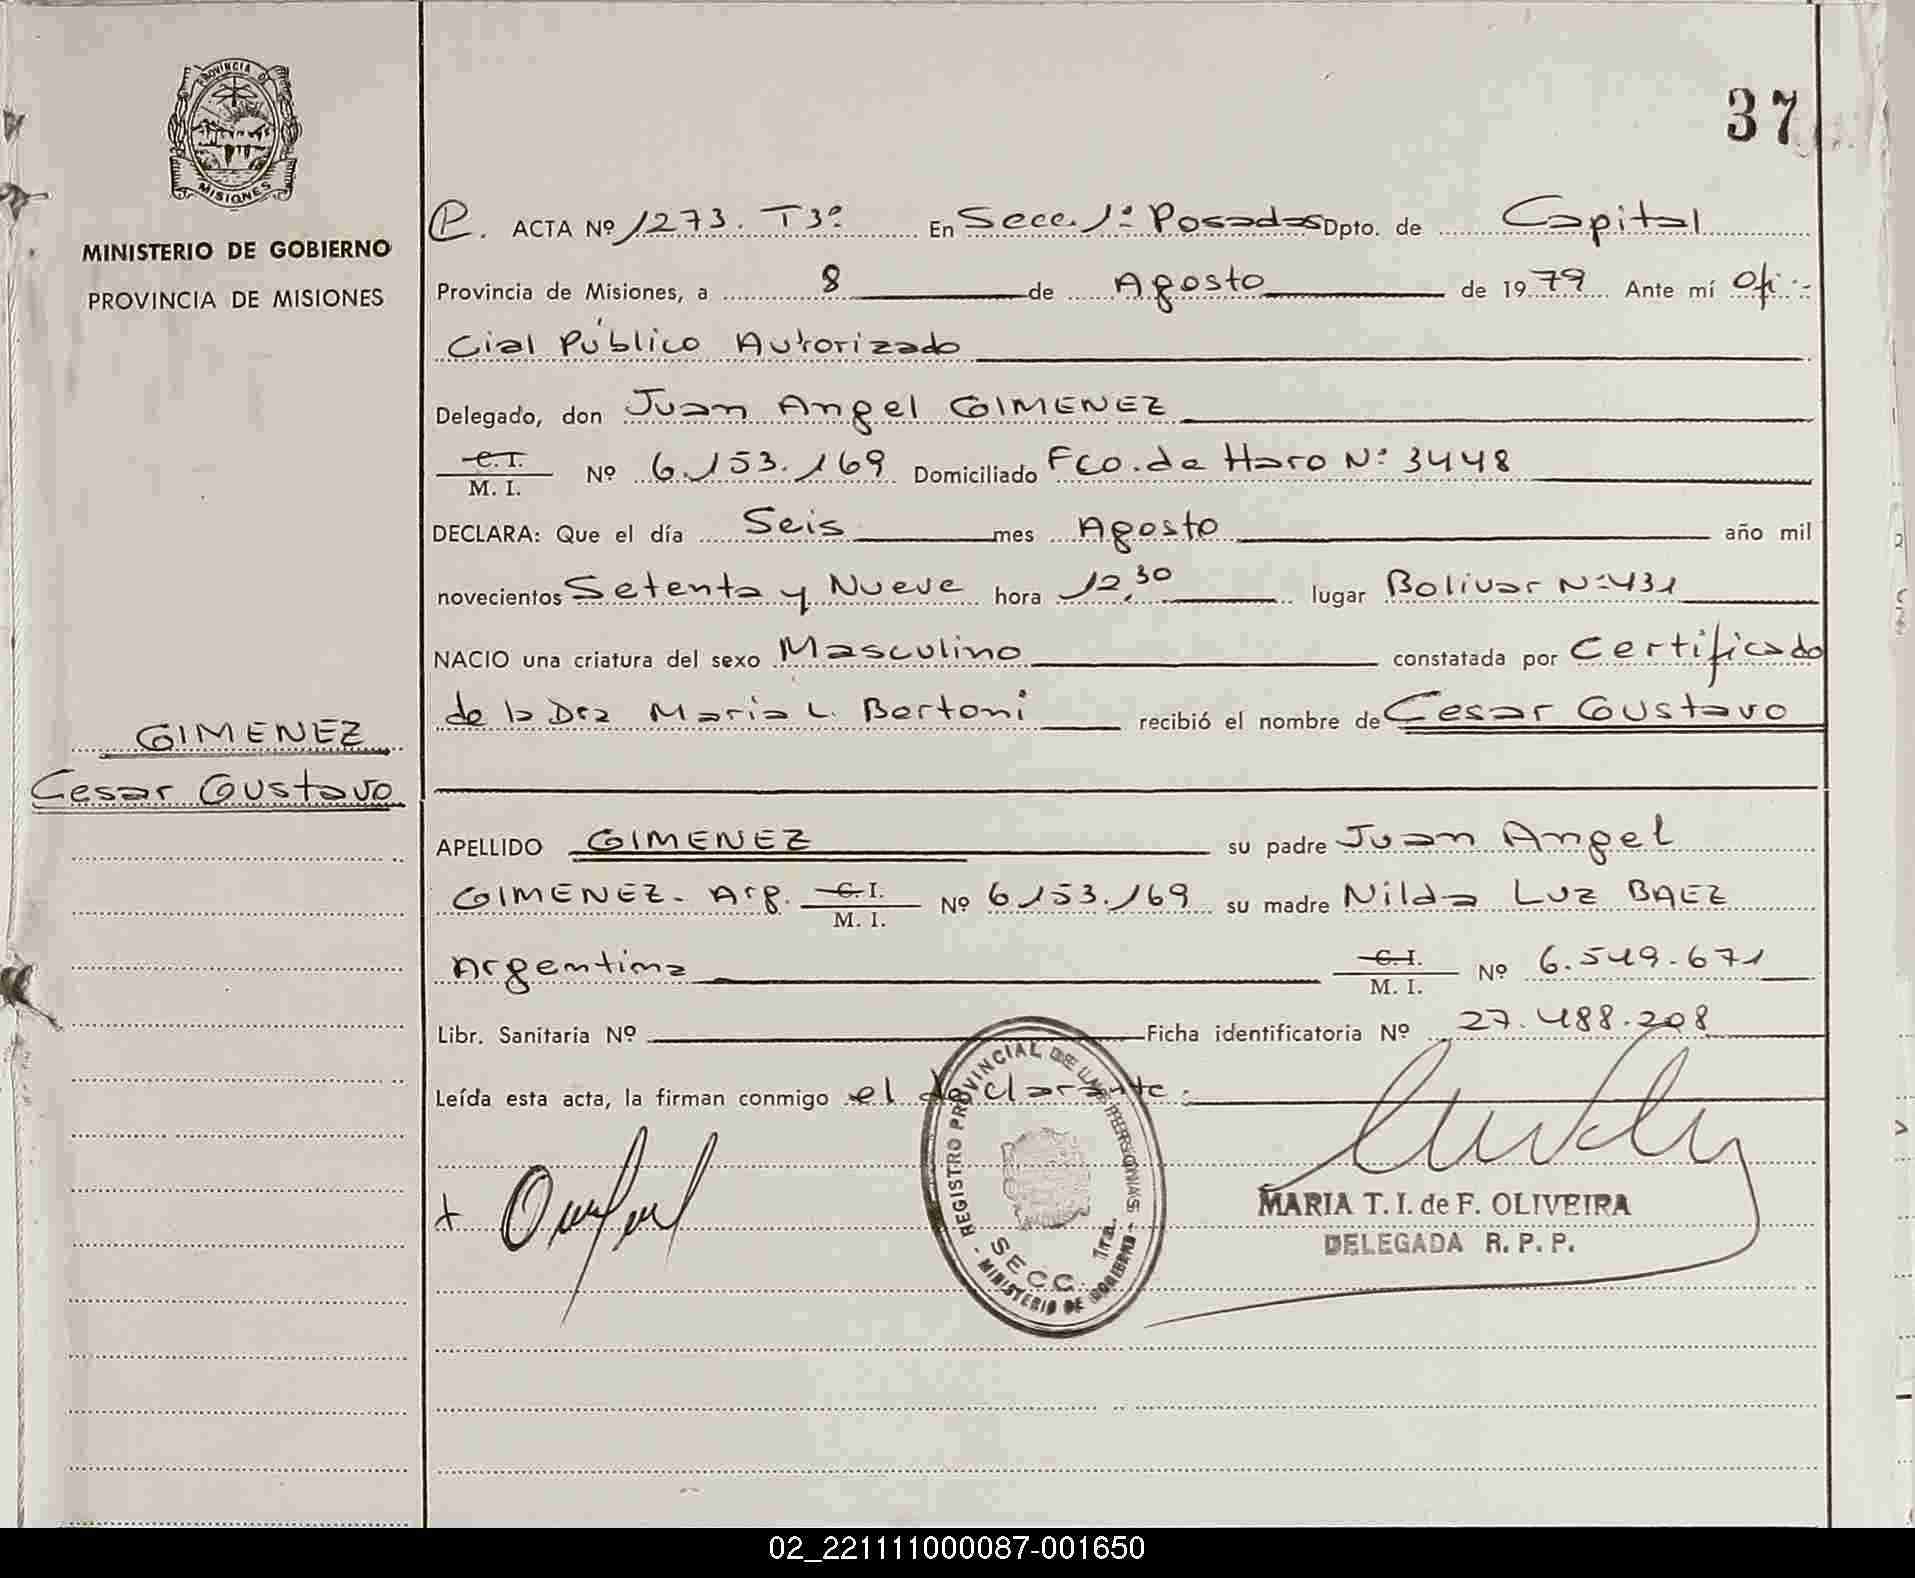 37
PROVINCIA DE
MISIONES
MINISTERIO DE GOBIERNO
PROVINCIA DE MISIONES
P. ACTA Nº 1273. T3º En Secc. 1ª Posadas Dpto. de Capital
Provincia de Misiones, a 8 de Agosto de 1979 Ante mí Ofi-
cial Público Autorizado
Delegado, don Juan Angel GIMENEZ
C. I.
M. I. Nº 6.153.169 Domiciliado Fco. de Haro Nº 3448
DECLARA: Que el día Seis mes Agosto año mil
novecientos Setenta y Nueve hora 12,30 lugar Bolivar Nº 431
NACIO una criatura del sexo Masculino constatada por Certificado
de la Dra Maria L. Bertoni recibió el nombre de Cesar Gustavo
GIMENEZ
Cesar Gustavo
APELLIDO GIMENEZ su padre Juan Angel
GIMENEZ - Arg. C. I.
M. I. Nº 6153.169 su madre Nilda Luz BAEZ
Argentina C. I.
M. I. Nº 6.549.671
Libr. Sanitaria Nº Ficha identificatoria Nº 27.488.208
Leída esta acta, la firman conmigo el declarante.
REGISTRO PROVINCIAL DE LAS PERSONAS
SECC. 1ra.
MINISTERIO DE GOBIERNO
MARIA T. I. de F. OLIVEIRA
DELEGADA R. P. P.
02_221111000087-001650